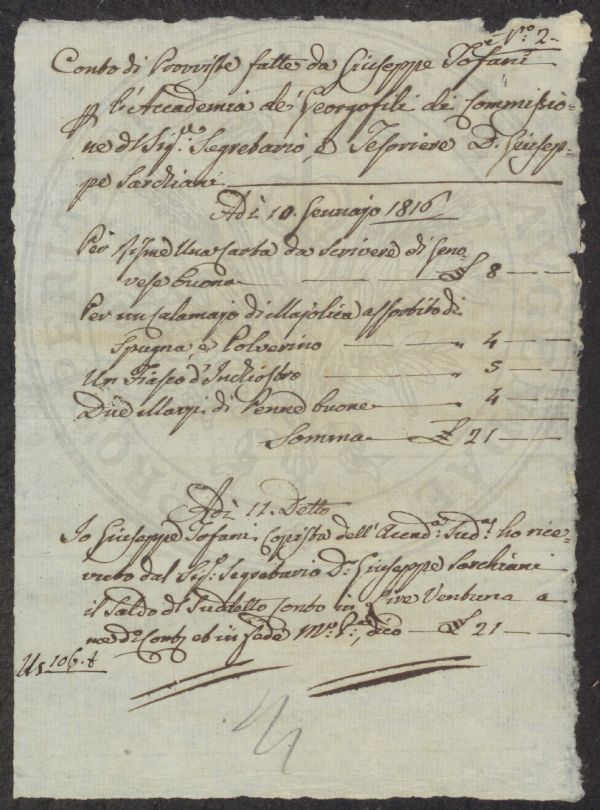 N.º 2.
Conto di Provviste fatte da Giuseppe Tofani
4
p l'Accademia de' Georgofili di Commissio-
ne dl Sig.re Segretario, e Tesoriere D. Giusep-
pe Sarchiani
Adì 10. Gennajo 1816
Per Risme Una Carta da Scrivere di Geno-
vese buona £ 8
Per un Calamajo di Majolica assortito di
Spugna, e Polverino " 4
Un Fiasco d'Inchiostro " 5
Due Mazzi di Penne buone 4
Somma £ 21
Adì 11. Detto
Io Giuseppe Tofani Copista dell' Accad.a Sud.a ho rice-
vuto dal Sig.r Segretario D.r Giuseppe Sarchiani
il Saldo dl Sudetto Conto in Lire Ventuna a
me d.i Cont.i et in fede M.o P.a dico £ 21
Us 106. t